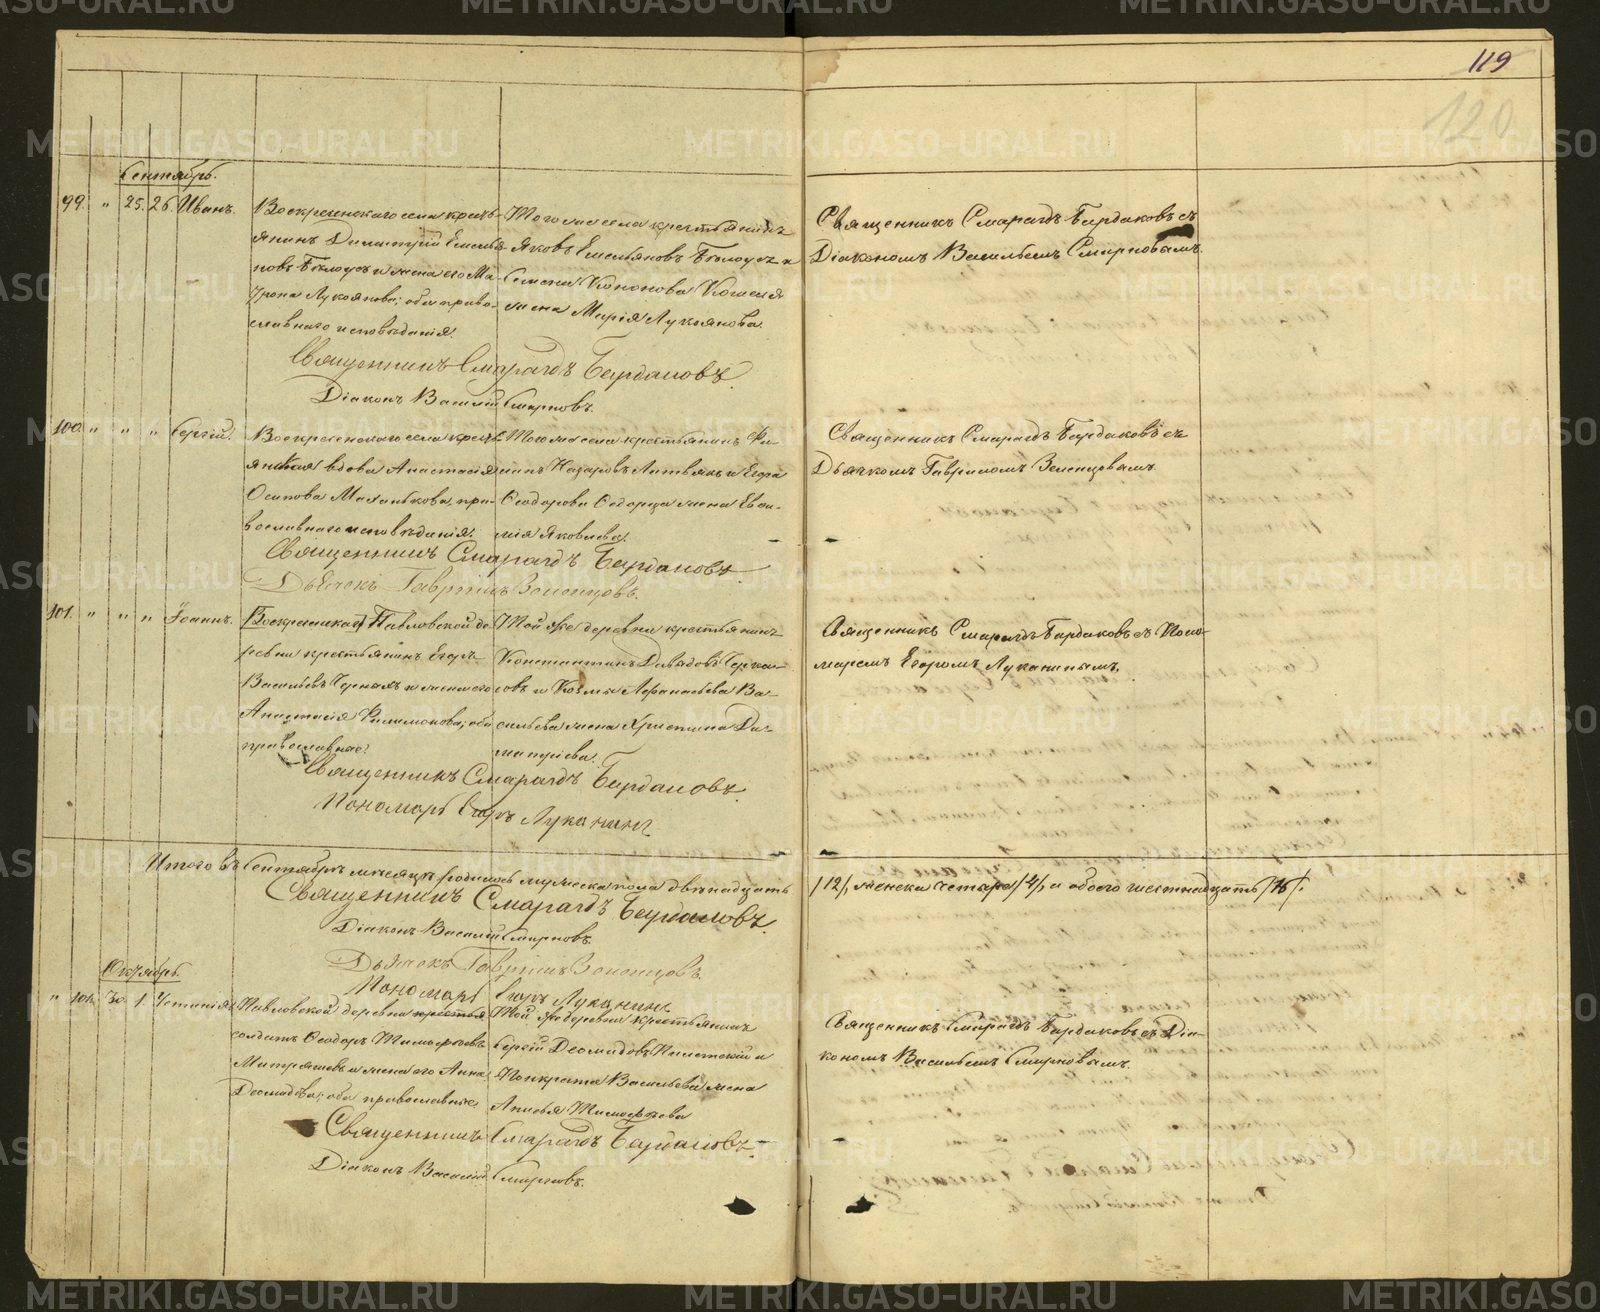 119
120
Сентябрь.
99. " 25. 26. Иванъ.
Воскресенскаго села кресть-
янинъ Димитрій Емелья-
новъ Бѣлоусъ и жена его Ма-
трона Лукоянова; оба право-
славнаго исповѣданія.
Того же села крестьянинъ
Яковъ Емельяновъ Бѣлоусъ и
Семена Кононова Кошеля
жена Марія Лукьянова.
Священникъ Смарагдъ Бардаковъ съ
Діакономъ Васильемъ Смирновымъ.
Священникъ Смарагдъ Бардаковъ.
Діаконъ Василій Смирновъ.
100. " " " Сергій.
Воскресенскаго села кресть-
янская вдова Анастасія
Осипова Маханькова, пра-
вославнаго исповѣданія.
Того же села крестьянинъ Фи-
липъ Назаровъ Литвякъ и Егора
Ѳеодорова Сидорца жена Евѳи-
мія Яковлева.
Священникъ Смарагдъ Бардаковъ съ
Дьячкомъ Гавриломъ Зеленцовымъ.
Священникъ Смарагдъ Бардаковъ.
Дьячекъ Гавріилъ Зеленцовъ.
101. " " " Іоаннъ.
Павловской де-
ревни крестьянинъ Егоръ
Васильевъ Чернякъ и жена его
Анастасія Филимонова; оба
православные.
Той же деревни крестьянинъ
Константинъ Давидовъ Черка-
совъ и Козмы Аѳанасьева Ва-
сильева жена Христина Ди-
митріева.
Священникъ Смарагдъ Бардаковъ съ Поно-
маремъ Егоромъ Луканинымъ.
Священникъ Смарагдъ Бардаковъ.
Пономарь Егоръ Луканинъ.
Итого въ Сентябрѣ мѣсяцѣ родилось мужеска пола двѣнадцать
/12/, женска четыре /4/, и обоего шестнадцать /16/.
Священникъ Смарагдъ Бардаковъ.
Діаконъ Василій Смирновъ.
Дьячекъ Гавріилъ Зеленцовъ.
Пономарь Егоръ Луканинъ
Октябрь.
" 101. 30. 1. Устинія.
Павловской деревни
солдатъ Ѳеодоръ Тимоѳеевъ
Митряшевъ и жена его Анна
Деомидова; оба православные
Той же деревни крестьянинъ
Сергій Деомидовъ и
Панкрата Васильева жена
Анисья Тимоѳеева
Священникъ Смарагдъ Бардаковъ съ Діа-
кономъ Васильемъ Смирновымъ.
Священникъ Смарагдъ Бардаковъ.
Діаконъ Василій Смирновъ.